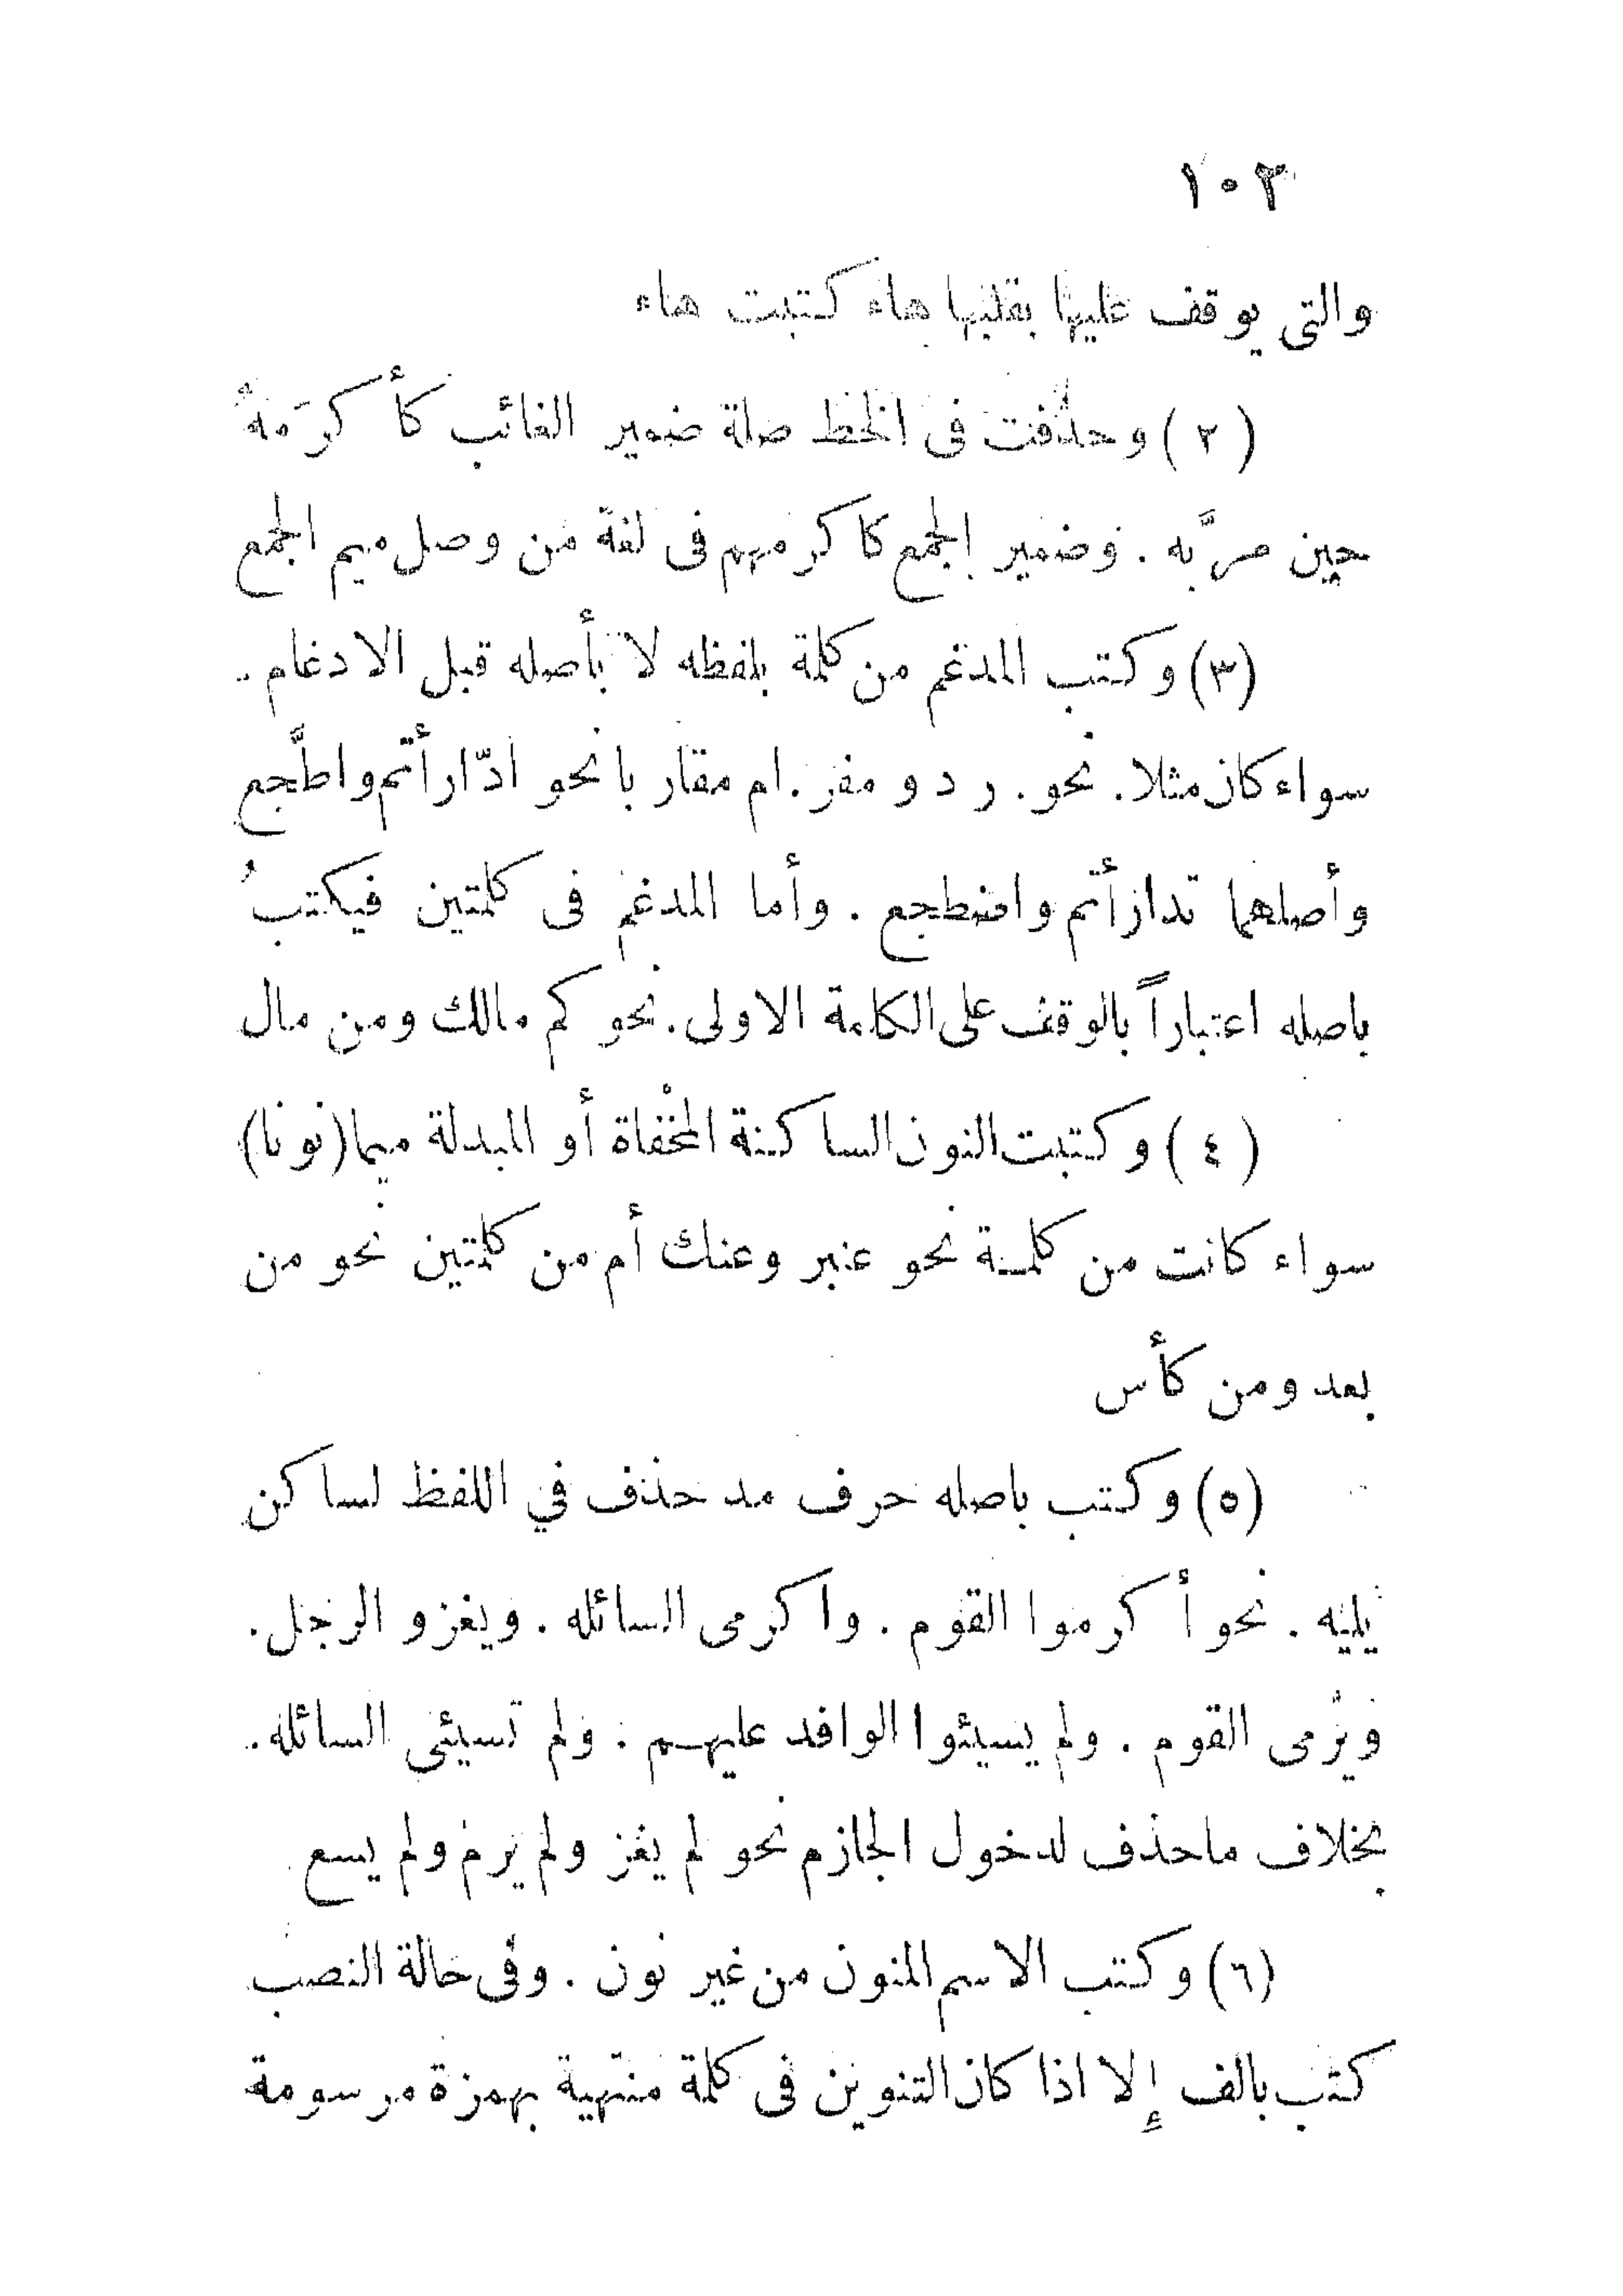 ١٠٣
والتى يوقف عليها بقلبها هاء كتبت هاء
(٢) وحذفت فى الخط صلة ضمير الغائب كأكرَمهُ
حين مرَّ به . وضمير الجمع كاكرمهم فى لغة من وصل ميم الجمع
(٣) وكتب المدغم من كلمة بلفظه لا بأصله قبل الادغام .
سواء كان مثلا . نحو . رد و مفر . ام مقاربا نحو ادّارأتم واطَّجع
وأصلهما تدارأتم واضطجع . وأما المدغم فى كلمتين فيكتبُ
باصله اعتباراً بالوقف على الكلمة الاولى . نحو كم مالك ومن مال
(٤) وكتبت النون الساكنة المخْفاة أو المبدلة ميما (نونا)
سواء كانت من كلمة نحو عنبر وعنك أم من كلمتين نحو من
بعد ومن كأس
(٥) وكتب باصله حرف مد حذف في اللفظ لساكن
يليه . نحو أكرموا القوم . واكرمى السائله . ويغزو الرجل .
ويرمى القوم . ولم يسيئوا الوافد عليهم . ولم تسيئى السائله .
بخلاف ماحذف لدخول الجازم نحو لم يغز ولم يرم ولم يسع
(٦) وكتب الاسم المنون من غير نون . وفى حالة النصب
كتب بالف إلا اذا كان التنوين فى كلمة منتهية بهمزة مرسومة